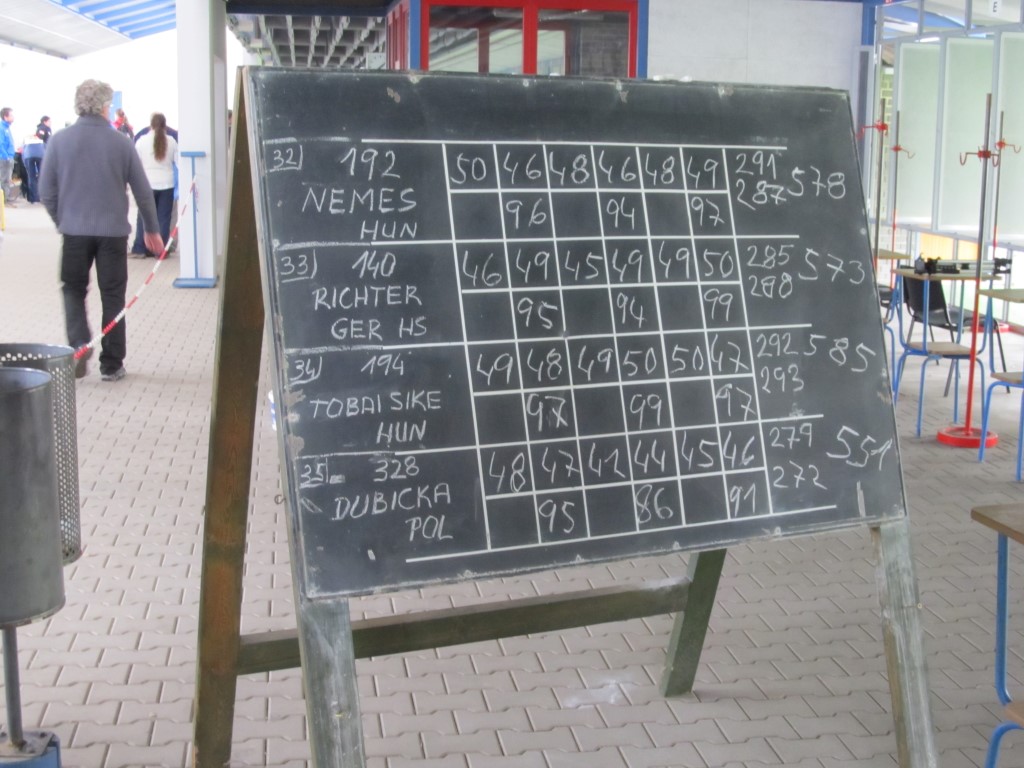 32) 192 50 46 48 46 48 49 291 578
NEMES 96 94 97 287
HUN
33) 140 46 49 45 49 49 50 285 573
RICHTER 95 94 99 288
GER HS
34) 194 49 48 49 50 50 47 292 585
TOBAI SIKE 97 99 97 293
HUN
35. 328 48 47 42 44 45 46 279 551
DUBICKA 95 86 91 272
POL
E